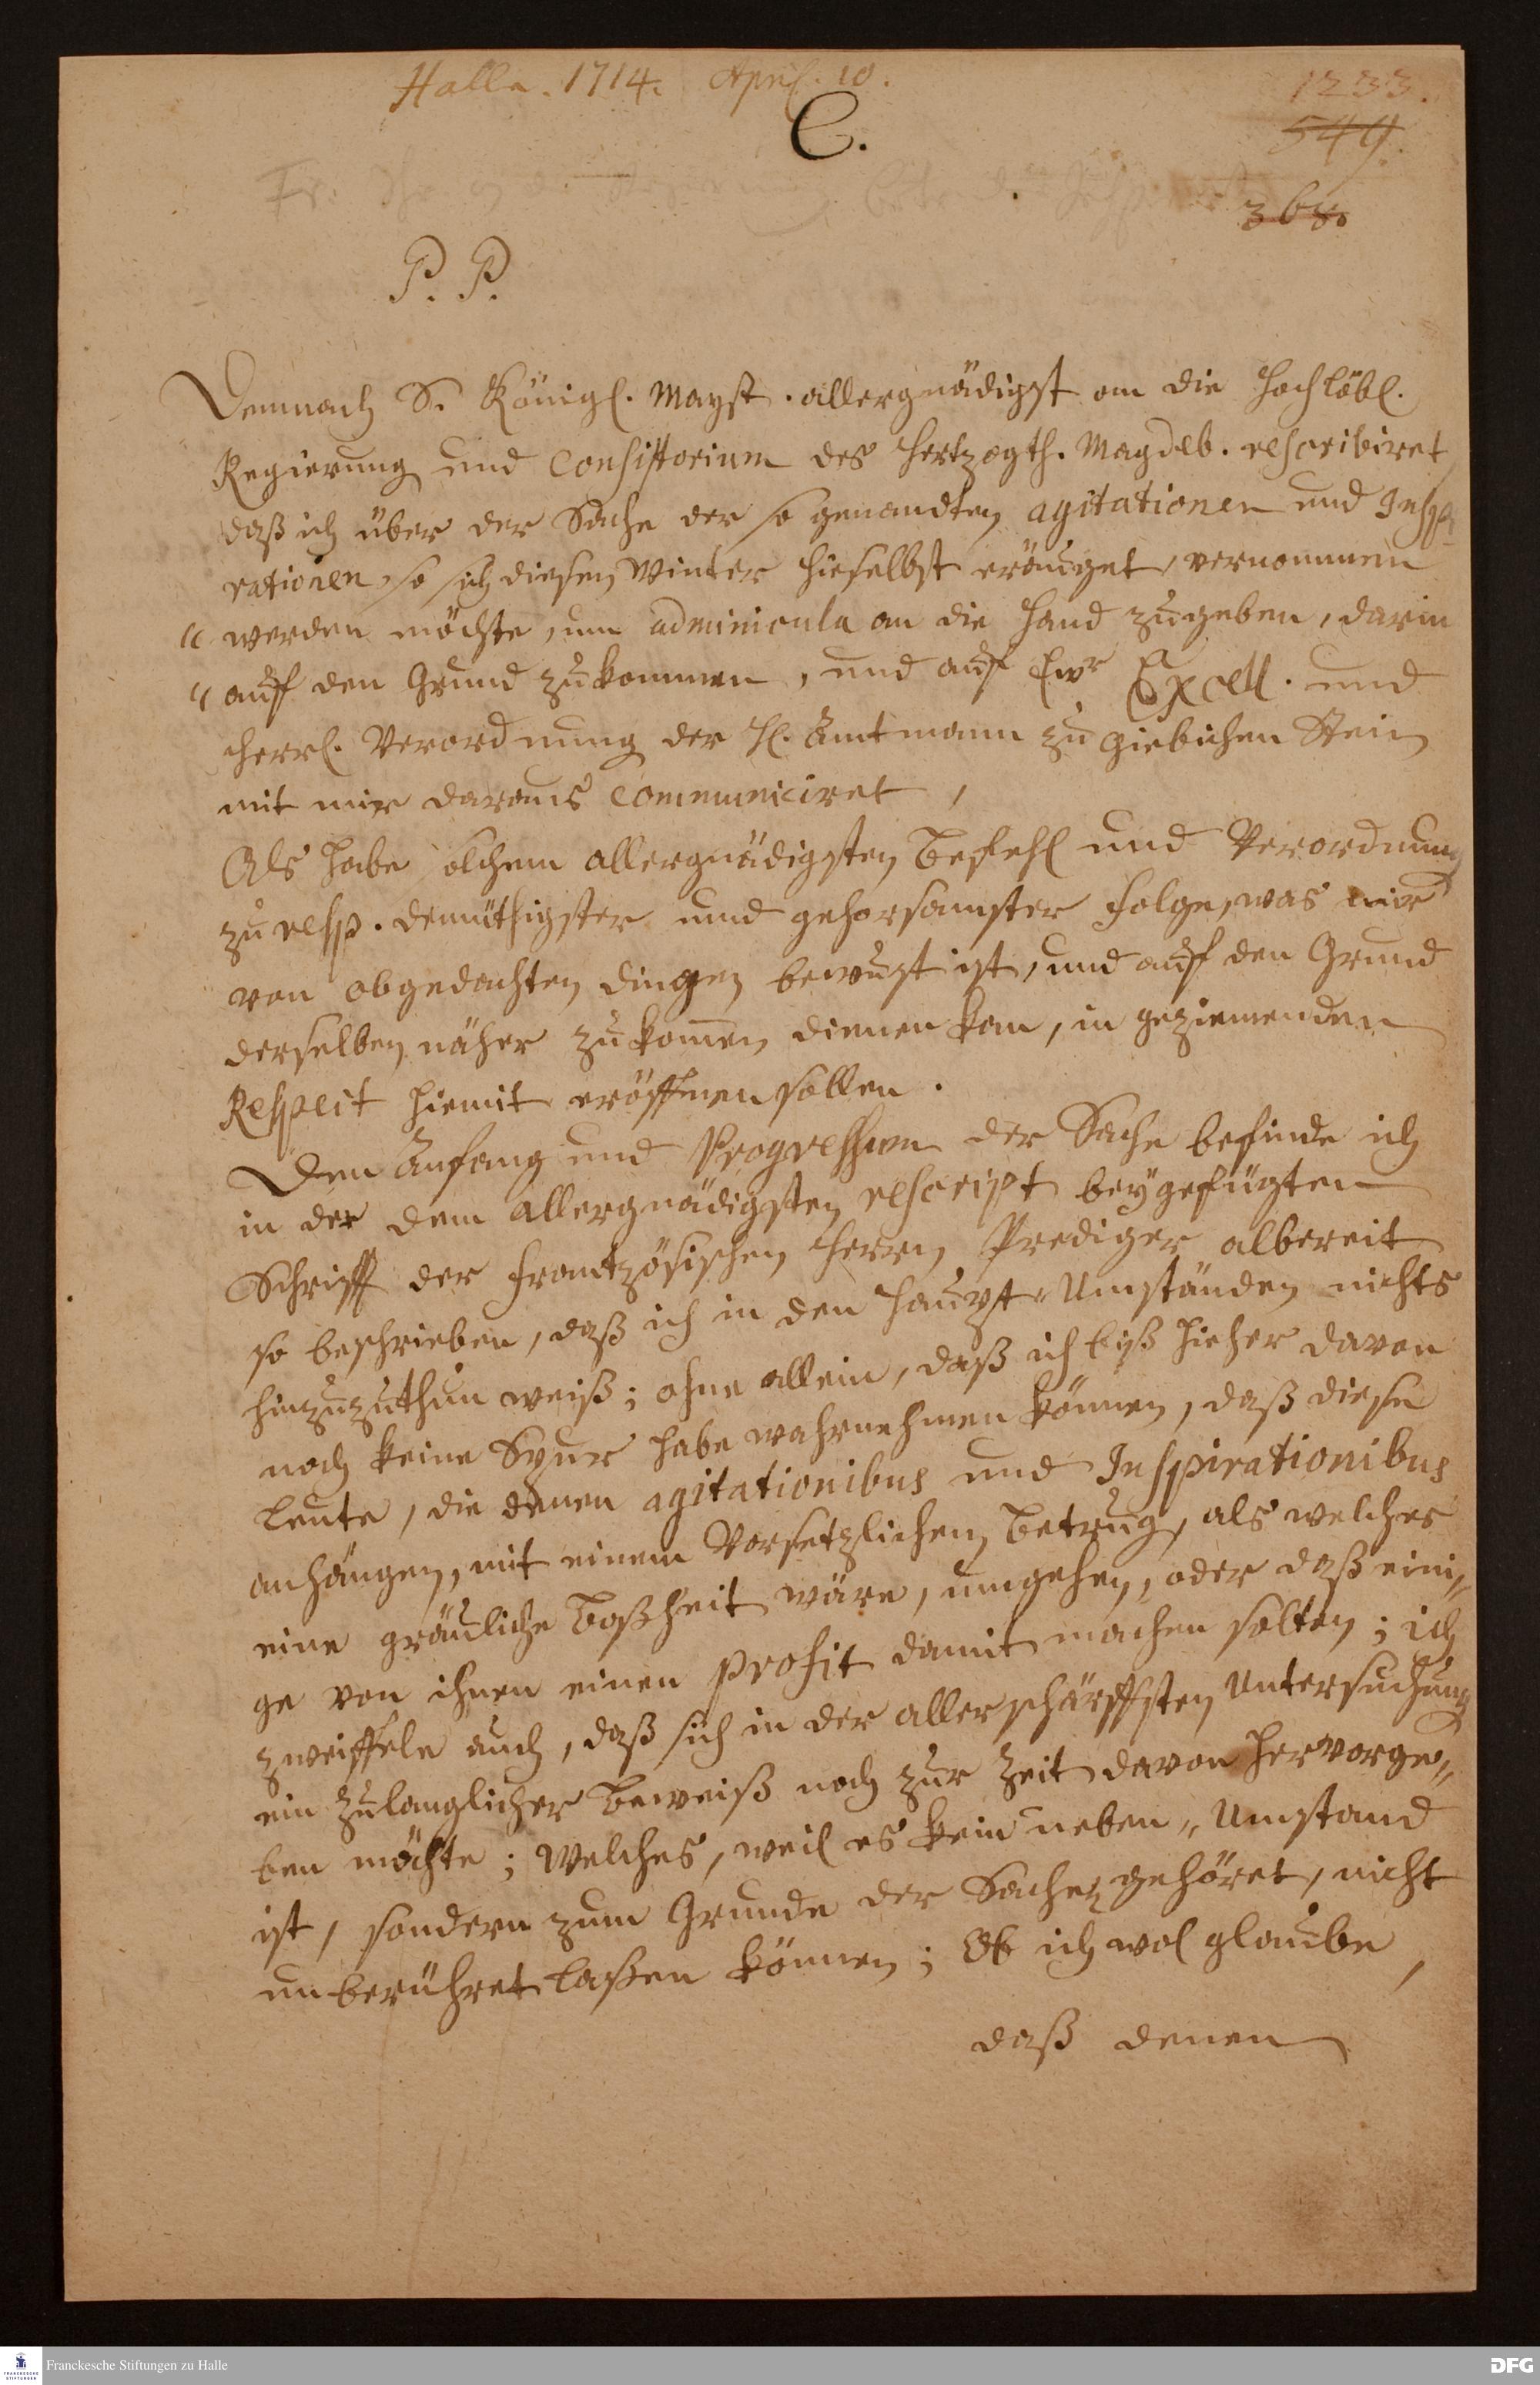 Halle. 1714. April. 10.
1233.
549.
C.
368.
P. P.
Demnach S. Königl. Mayst. allergnädigst an die Hochlöbl.
Regierung und Consistorium des Hertzogth. Magdeb. rescribiret
daß ich über der Sache der so genandten agitationen und Inspi-
rationen, so sich diesen Winter hieselbst eräuget, vernommen
" werden möchte, um adminicula an die Hand zugeben, darin
" auff den Grund zukommen, und auff Ewr Excell. und
Herrl. Verordnung der H. Amtmann zu Giebichen Stein
mit mir daraus communiciret,
Als habe solchem allergnädigsten Befehl und Verordnung
zu resp. demüthigster und gehorsamster Folge, was mir
von obgedachten dingen bewust ist, und auff den Grund
derselben näher zukommen dienen kan, in geziemenden
Respect hiemit eröffnen sollen.
Den Anfang und Progression der Sache befinde ich
in der dem allergnädigsten rescript beygefügten
Schrifft der Frantzösischen Herrn Prediger albereit
so beschrieben, daß ich in den Haupt-Umständen nichts
hinzuzuthun weiß; ohne allein, daß ich biß hieher davon
noch keine Spur habe wahrnehmen können, daß diese
Leute, die denen agitationibus und Inspirationibus
anhängen, mit einem Vorsetzlichen Betrug, als welches
eine gräuliche Boßheit wäre, umgehen, oder daß eini-
ge von ihnen einen profit damit machen solten; ich
zweiffele auch, daß sich in der allerschärffsten Untersuchung
ein zulänglicher Beweiß noch zur Zeit davon hervorge-
ben möchte; Welches, weil es kein neben-Umstand
ist, sondern zum Grunde der Sachen gehöret, nicht
unberühret laßen können; Ob ich wol glaube,
daß denen
Franckesche Stiftungen zu Halle
FRANCKESCHE STIFTUNGEN
DFG